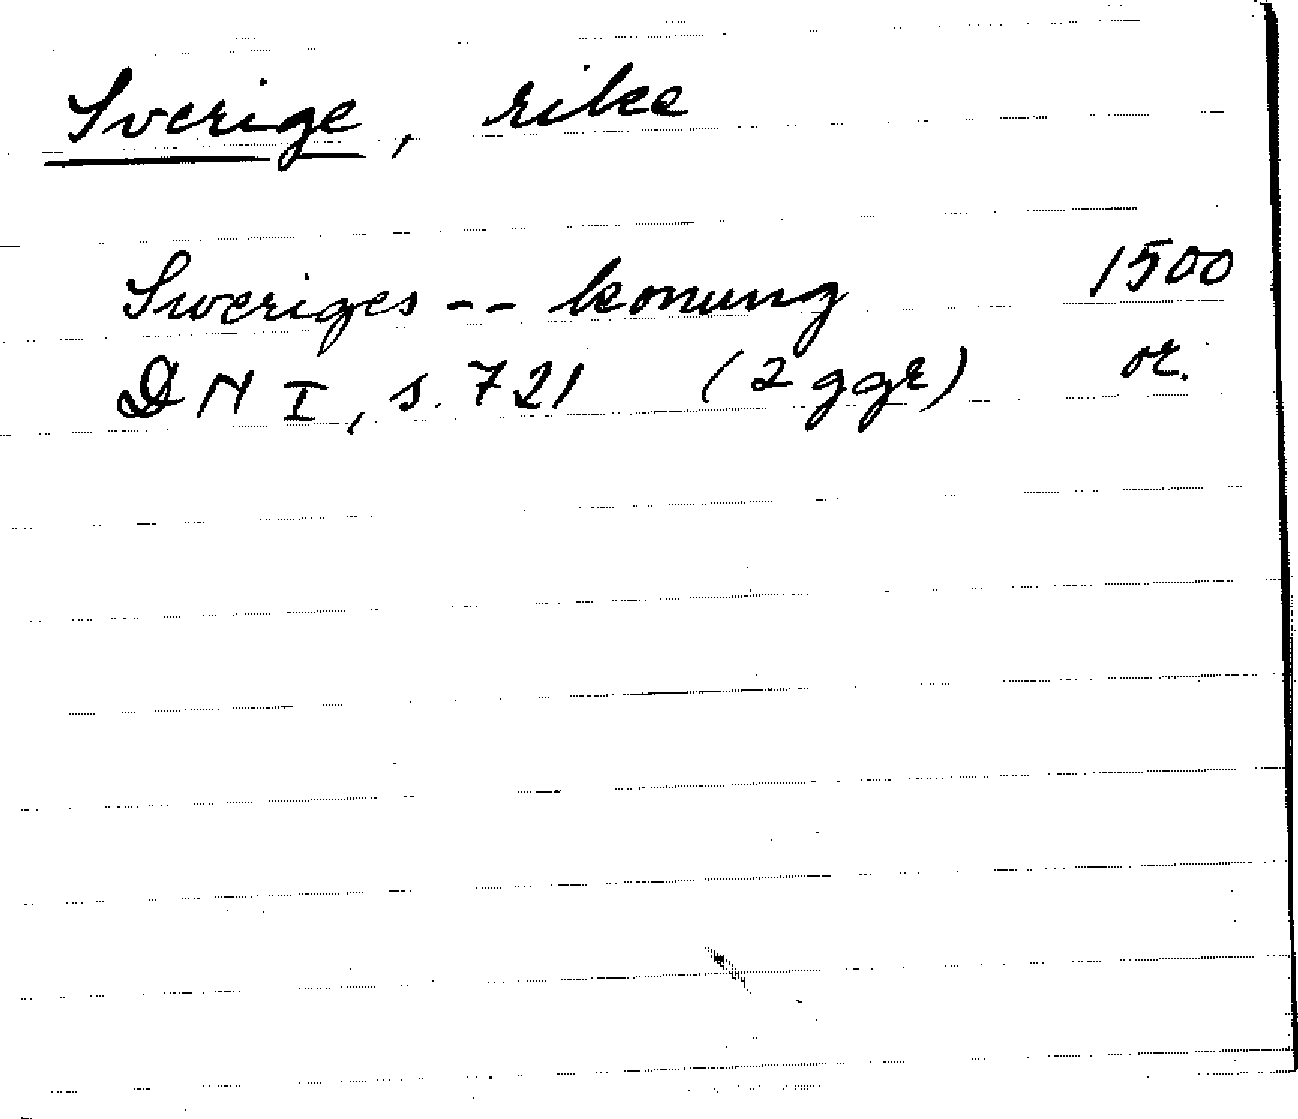 Sverige, rike
Sweriges -- konung 1500
DN I, s. 721 (2 ggr) or.